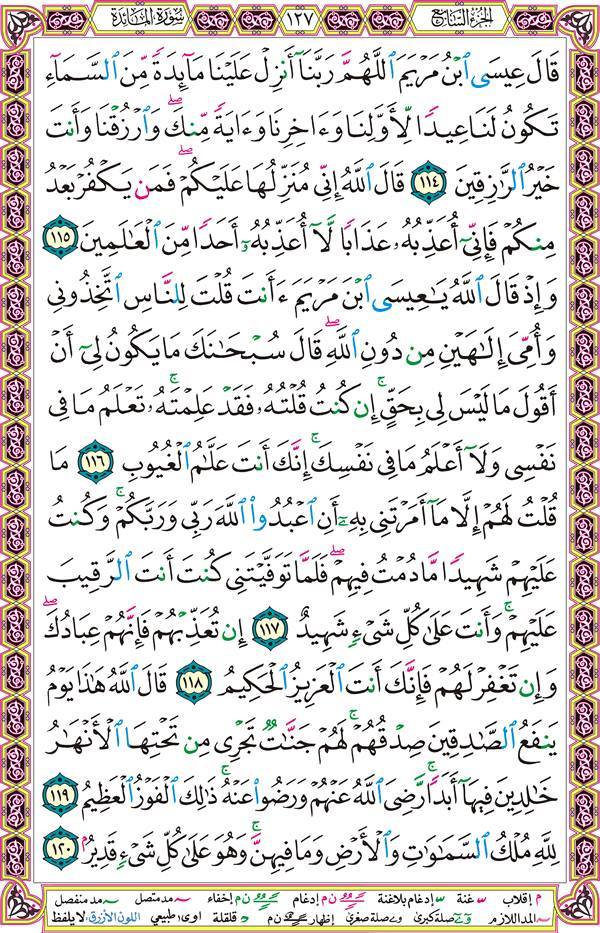 الجزء السابع ١٢٧ سورة المائدة
قَالَ عِيسَى ٱبْنُ مَرْيَمَ ٱللَّهُمَّ رَبَّنَآ أَنزِلْ عَلَيْنَا مَآئِدَةً مِّنَ ٱلسَّمَآءِ
تَكُونُ لَنَا عِيدًا لِّأَوَّلِنَا وَءَاخِرِنَا وَءَايَةً مِّنكَ ۖ وَٱرْزُقْنَا وَأَنتَ
خَيْرُ ٱلرَّازِقِينَ ١١٤ قَالَ ٱللَّهُ إِنِّى مُنَزِّلُهَا عَلَيْكُمْ ۖ فَمَن يَكْفُرْ بَعْدُ
مِنكُمْ فَإِنِّىٓ أُعَذِّبُهُۥ عَذَابًا لَّآ أُعَذِّبُهُۥٓ أَحَدًا مِّنَ ٱلْعَالَمِينَ ١١٥
وَإِذْ قَالَ ٱللَّهُ يَاعِيسَى ٱبْنَ مَرْيَمَ ءَأَنتَ قُلْتَ لِلنَّاسِ ٱتَّخِذُونِى
وَأُمِّىَ إِلَاهَيْنِ مِن دُونِ ٱللَّهِ ۖ قَالَ سُبْحَانَكَ مَا يَكُونُ لِىٓ أَنْ
أَقُولَ مَا لَيْسَ لِى بِحَقٍّ ۚ إِن كُنتُ قُلْتُهُۥ فَقَدْ عَلِمْتَهُۥ ۚ تَعْلَمُ مَا فِى
نَفْسِى وَلَآ أَعْلَمُ مَا فِى نَفْسِكَ ۚ إِنَّكَ أَنتَ عَلَّامُ ٱلْغُيُوبِ ١١٦ مَا
قُلْتُ لَهُمْ إِلَّا مَآ أَمَرْتَنِى بِهِۦٓ أَنِ ٱعْبُدُوا۟ ٱللَّهَ رَبِّى وَرَبَّكُمْ ۚ وَكُنتُ
عَلَيْهِمْ شَهِيدًا مَّا دُمْتُ فِيهِمْ ۖ فَلَمَّا تَوَفَّيْتَنِى كُنتَ أَنتَ ٱلرَّقِيبَ
عَلَيْهِمْ ۚ وَأَنتَ عَلَىٰ كُلِّ شَىْءٍ شَهِيدٌ ١١٧ إِن تُعَذِّبْهُمْ فَإِنَّهُمْ عِبَادُكَ ۖ
وَإِن تَغْفِرْ لَهُمْ فَإِنَّكَ أَنتَ ٱلْعَزِيزُ ٱلْحَكِيمُ ١١٨ قَالَ ٱللَّهُ هَاذَا يَوْمُ
يَنفَعُ ٱلصَّادِقِينَ صِدْقُهُمْ ۚ لَهُمْ جَنَّاتٌ تَجْرِى مِن تَحْتِهَا ٱلْأَنْهَارُ
خَالِدِينَ فِيهَآ أَبَدًا ۚ رَّضِىَ ٱللَّهُ عَنْهُمْ وَرَضُوا۟ عَنْهُ ۚ ذَالِكَ ٱلْفَوْزُ ٱلْعَظِيمُ ١١٩
لِلَّهِ مُلْكُ ٱلسَّمَاوَاتِ وَٱلْأَرْضِ وَمَا فِيهِنَّ ۚ وَهُوَ عَلَىٰ كُلِّ شَىْءٍ قَدِيرٌ ١٢٠
م إقلاب غنة إدغام بلاغنة ن م إدغام ن م إخفاء مد متصل مد منفصل
المد اللازم صلة كبرى صلة صغرى إظهار ن م قلقلة اوى طبيعي اللون الأزرق: لا يلفظ